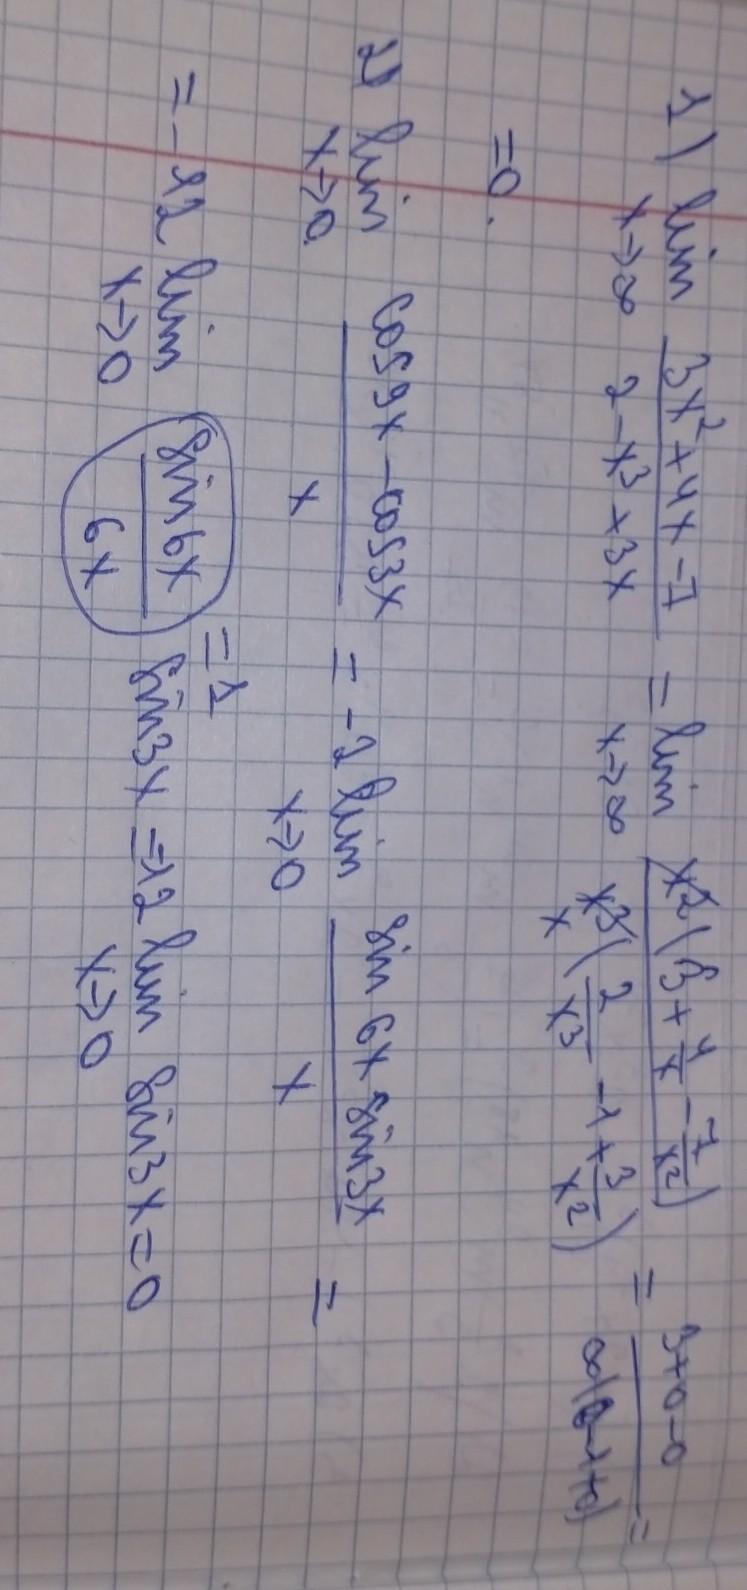 1) lim x→∞ (3x² + 4x - 7)/(2 - x³ + 3x) = lim x→∞ x²(3 + 4/x - 7/x²)/x³(2/x³ - 1 + 3/x²) x = (3+0-0)/∞(0-1+0) =
= 0.
2) lim x→0 (cos9x - cos3x)/x = -2 lim x→0 (sin 6x sin3x)/x =
= -12 lim x→0 (sin6x)/(6x) =1 sin3x = -12 lim x→0 sin3x = 0